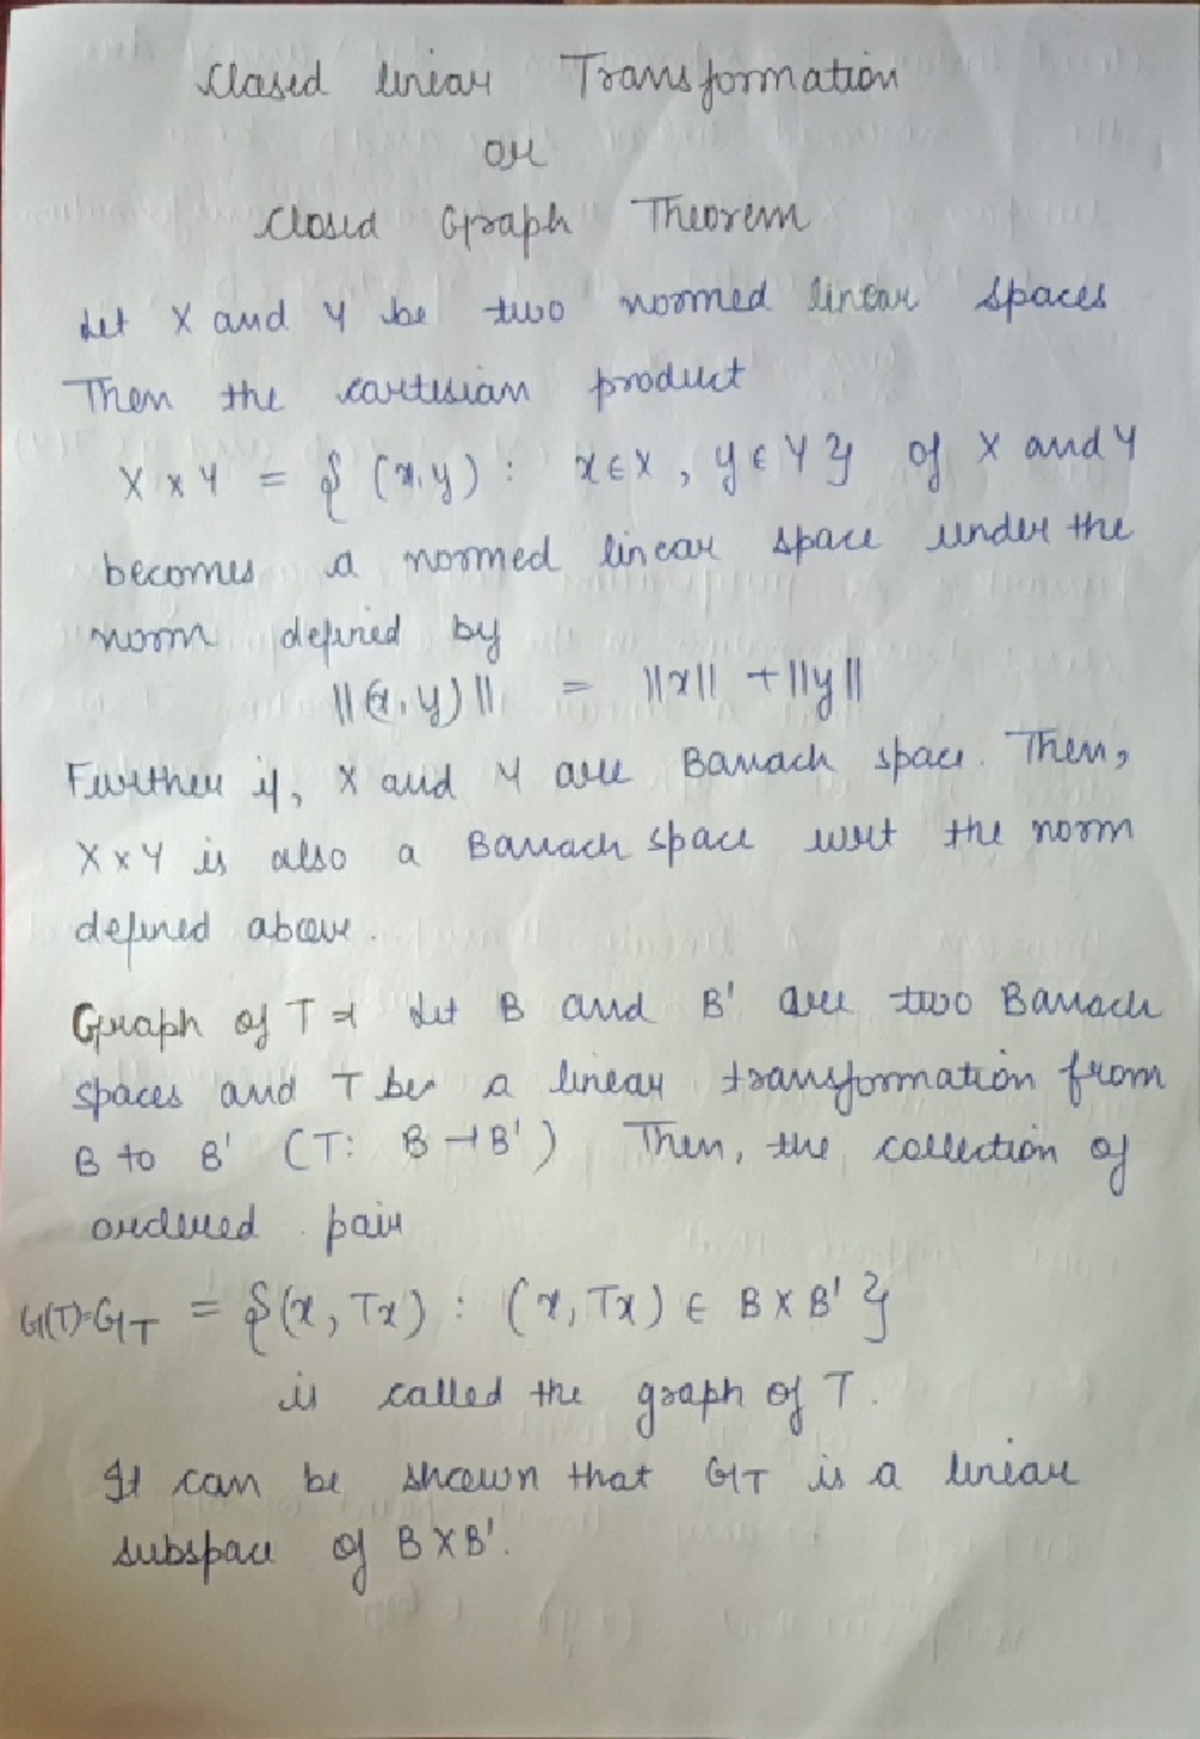 Closed linear Transformation
or
Closed Graph Theorem
Let X and Y be two normed linear spaces
Then the cartesian product
X x Y = { (x, y) : x ∈ X , y ∈ Y } of X and Y
becomes a normed linear space under the
norm defined by
||(x, y)|| = ||x|| + ||y||
Further if, X and Y are Banach space. Then,
X x Y is also a Banach space wrt the norm
defined above.
Graph of T → Let B and B' are two Banach
spaces and T be a linear transformation from
B to B' (T: B → B') Then, the collection of
ordered pair
G(T)=G_T = {(x, Tx) : (x, Tx) ∈ B X B' }
is called the graph of T.
It can be shown that G_T is a linear
subspace of B X B'.